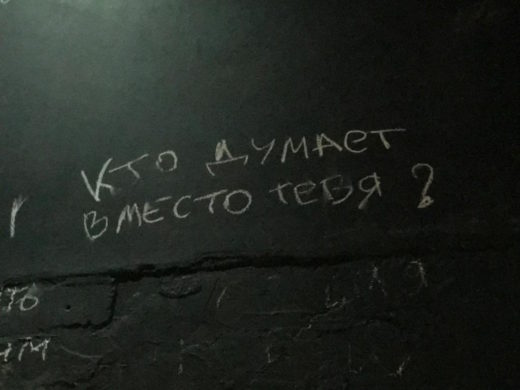 КТО ДУМАЕТ
ВМЕСТО ТЕБЯ?